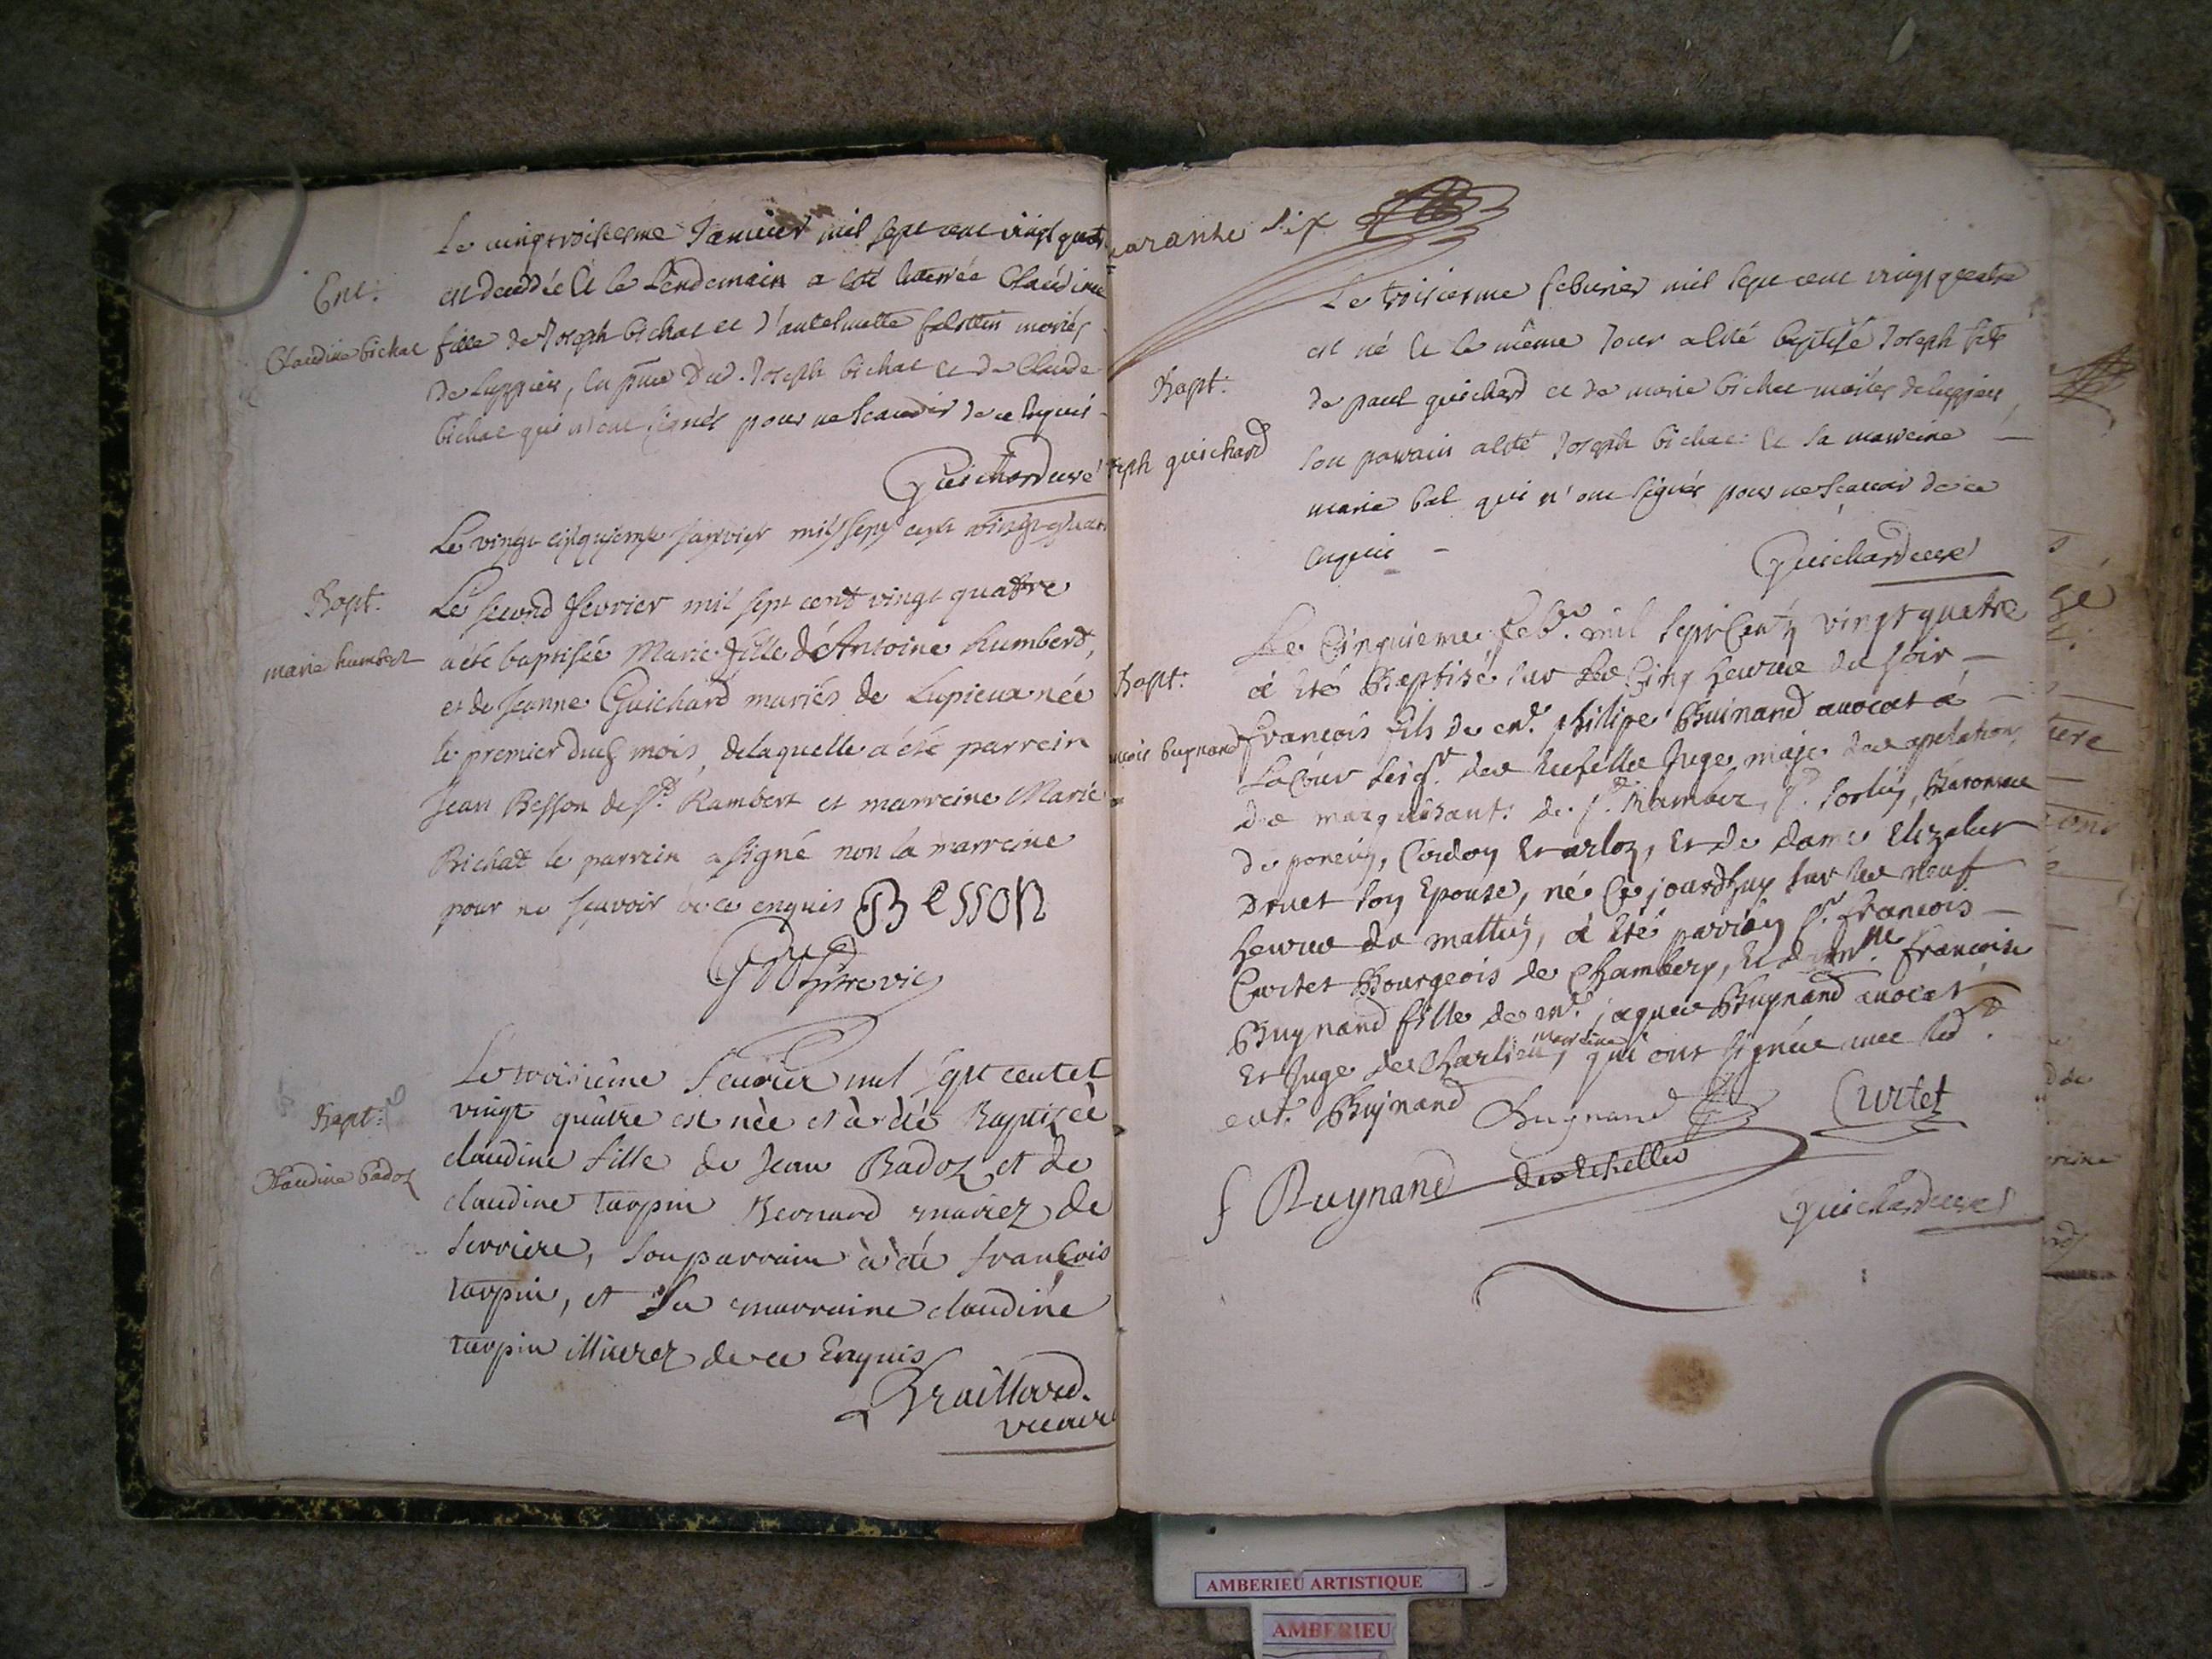 Le vingt troisiesme Janvier mil sept cent vingt quatr
Ent:
est decedée et le Lendemain a esté enterrée Claudine
Claudine bichat
fille de Joseph bichat et d'antelmette mariés
de Luppieu, en pnce Dud. Joseph bichat et de Claude
bichat qui n'ont signés pour ne scavoir de ce enquis
Guichard curé
Le vingt cinquieme janvier mil sept cent vingt quatr
Bapt.
marie humbert
Le second fevrier mil sept cent vingt quattre
a été baptisée Marie fille d'Antoine humbert,
et de Jeanne Guichard mariés de Lupieux née
le premier dud mois, de laquelle a été parrein
Jean Besson de St Rambert et marreine Marie
Bichat le parrein a signé non la marreine
pour ne sçavoir de ce enquis Besson
vic
Bapt:
Claudine badoz
Le troisième feuvrier mil sept cent et
vingt quàtre est nèe et à èté Baptizèè
claudine fille de Jean Badoz et de
claudine tarpin Bernard mariez de
serriere, son parrain à été francois
tarpin, et sa marraine claudine
tarpin illiterez de ce Enquis
Braillard.
vicaire
arante six
Le troisiesme febvrier mil sept cent vingt quatre
est né et le même Jour a esté baptisé Joseph fils
Bapt:
de paul guichard et de marie bichat mariés de luppieu
seph guichard
son parrain a esté Joseph bichat et sa marreine
marie bal qui n'ont signés pour ne scavoir de ce
enquis
Guichard curé
Le Cinquieme feb. mil sept Cent vingt quatre
Bapt:
à été Baptisé sur les Cinq heures du soir
ncois bugnand
francois fils de mr philipe Buinand avocat à
La Cour seigr des Echelles Juge maje des apelations
des marquisant: de St Rambert, St sorlin, Baronnie
de poncin, Cerdon et arloz, et de dame Elizabet
Druet son Epouse, né Ce jourdhuy sur les neuf
heures du mattin, à été parrien sr francois
Curtet Bourgeois de Chambery, et dame francoise
Buynand fille de mr jaques Buynand avocat
et Juge de Charlieu marreine, qui ont signée avec led
avt. Buynand Bugnand Curtet
f Buynand des Echelles
Guichard curé
AMBERIEU ARTISTIQUE
AMBERIEU